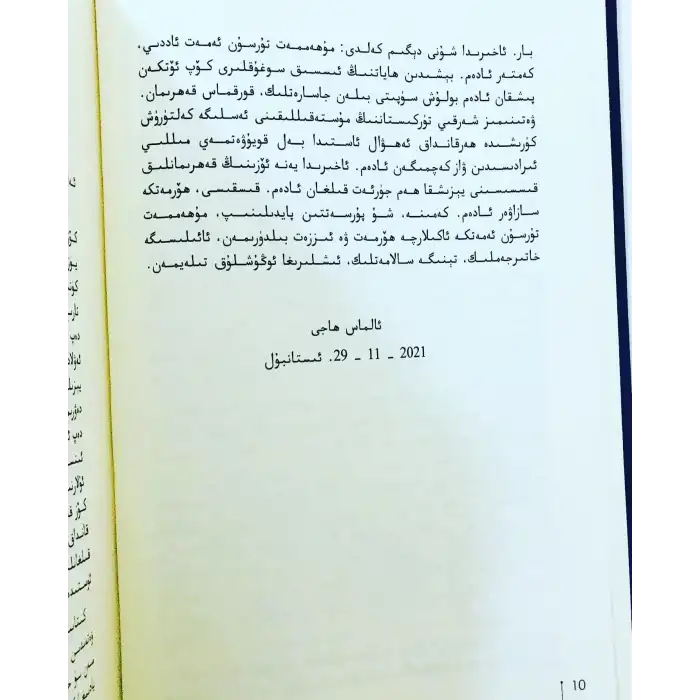 بار. ئاخىرىدا شۇنى دېگىم كەلدى: مۇھەممەت تۇرسۇن ئەمەت ئاددىي،
كەمتەر ئادەم. بېشىدىن ھاياتنىڭ ئىسسىق سوغۇقلىرى كۆپ ئۆتكەن
پىشقان ئادەم بولۇش سۈپىتى بىلەن جاسارەتلىك، قورقماس قەھرىمان.
ۋەتىنىمىز شەرقىي تۈركىستاننىڭ مۇستەقىللىقىنى ئەسلىگە كەلتۈرۈش
كۈرىشىدە ھەرقانداق ئەھۋال ئاستىدا بەل قويۇۋەتمەي مىللىي
ئىرادىسىدىن ۋاز كەچمىگەن ئادەم. ئاخىرىدا يەنە ئۆزىنىڭ قەھرىمانلىق
قىسسىسىنى يېزىشقا ھەم جۈرئەت قىلغان ئادەم. قىسقىسى، ھۆرمەتكە
سازاۋەر ئادەم. كەمىنە، شۇ پۇرسەتتىن پايدىلىنىپ، مۇھەممەت
تۇرسۇن ئەمەتكە ئاكىلارچە ھۆرمەت ۋە ئىززەت بىلدۈرىمەن، ئائىلىسىگە
خاتىرجەملىك، تېنىگە سالامەتلىك، ئىشلىرىغا ئوڭۇشلۇق تىلەيمەن.
ئالماس ھاجى
2021 - 11 - 29. ئىستانبۇل
10